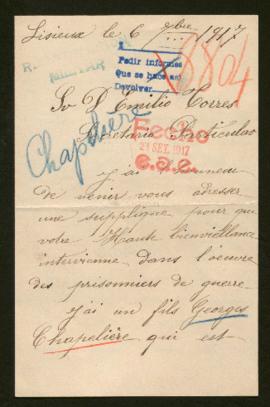 Lisieux le 6 7bre 1917
R. MILITAR
1
Pedir informes
Que se hace así
Devolver
8804
Sr D Emilio Torres
Secretario Particular
Fecho
21 SET. 1917
C.a.e.
Chapelière
J'ai l'honneur
de venir vous adresser
une supplique pour que
votre Haute bienveillance
intervienne dans l'oeuvre
des prisonniers de guerre
J'ai un fils Georges
Chapelière qui est